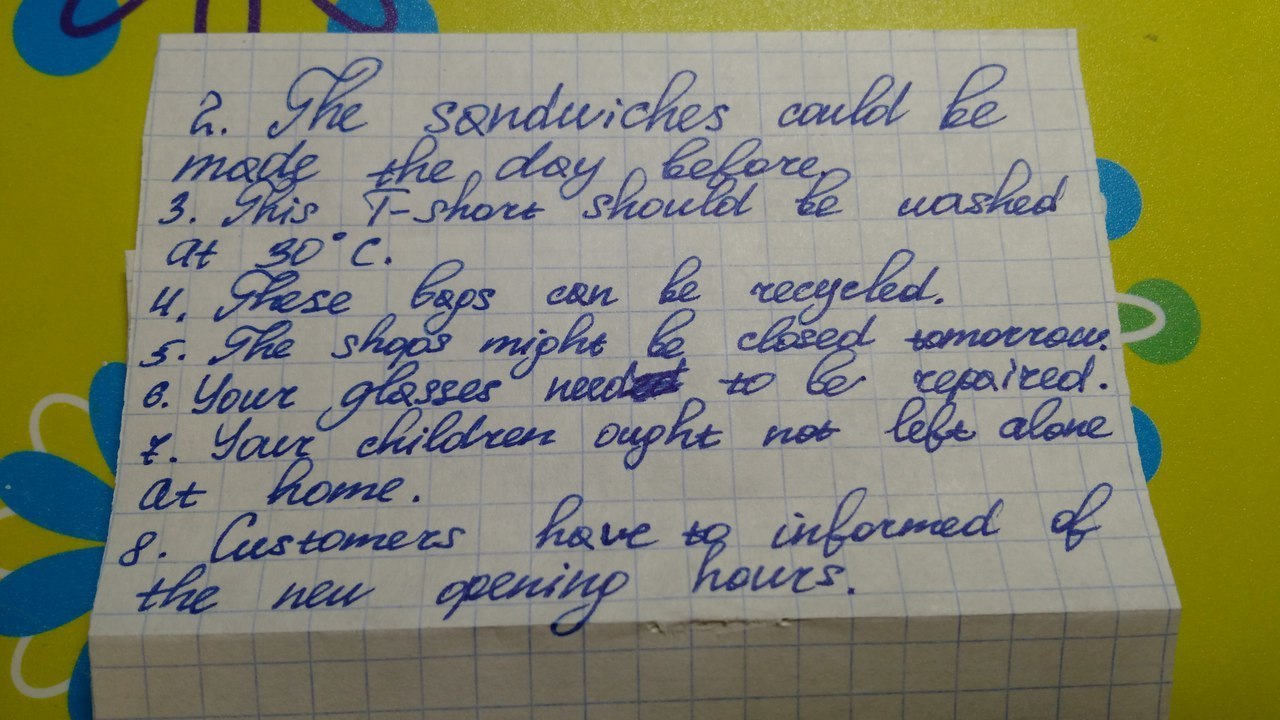 2. The sandwiches could be
made the day before.
3. This T-short should be washed
at 30°C.
4. These bags can be recycled.
5. The shops might be closed tomorrow.
6. Your glasses need to be repaired.
7. Your children ought not left alone
at home.
8. Customers have to informed of
the new opening hours.